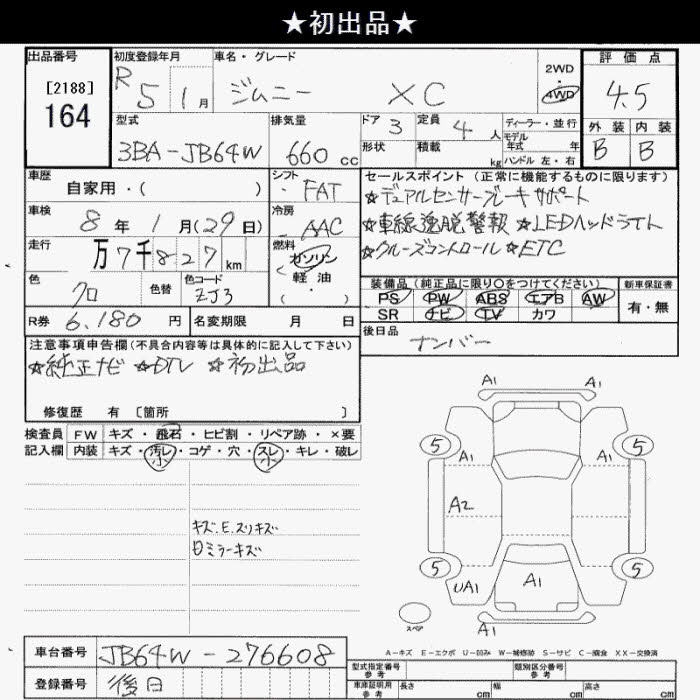 ★初出品★
出品番号
[2188]
164
初度登録年月
R5 1月
車名・グレード
ジムニー XC
2WD
・
4WD
評価点
4.5
外装 内装
B B
型式
3BA-JB64W
排気量
660cc
ドア 3
定員 4人
ディーラー・並行
モデル年式 年
形状
積載 kg
ハンドル 左・右
車歴
自家用・( )
シフト
FAT
セールスポイント(正常に機能するものに限ります)
☆デュアルセンサーブレーキサポート
☆車線逸脱警報 ☆LEDヘッドライト
☆クルーズコントロール ☆ETC
車検
8年1月(29日)
冷房
AAC
走行
万7千827km
燃料
ガソリン
軽油
( ・ )
色
クロ
色替
色コード
ZJ3
装備品(純正品に限り○をつけてください)
PS PW ABS エアB AW
SR ナビ TV カワ
新車保証書
有・無
R券 6,180円
名変期限 月 日
後日品
ナンバー
注意事項申告欄(不具合内容等は具体的に記入して下さい)
☆純正ナビ ☆DTV ☆初出品
修復歴 有 [箇所 ]
検査員
記入欄
FW キズ・飛石・ヒビ割・リペア跡・×要
内装 キズ・汚レ・コゲ・穴・スレ・キレ・破レ
小 小
キズ.E.スリキズ
日ミラーキズ
A1 A1
5 5
A1 A1
A2
5 5
UA1 A1
A1
スペア
A-キズ E-エクボ U-凹み W-補修跡 S-サビ C-腐食 XX-交換済
車台番号 JB64W-276608
登録番号 後日
型式指定番号
参考
類別区分番号
参考
車庫証明用
参考
長さ cm 幅 cm 高さ cm